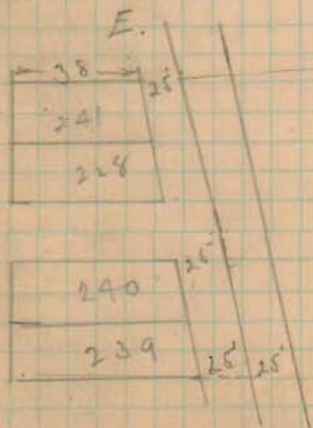 E.
38
25'
241
228
25'
240
239
25' 25'